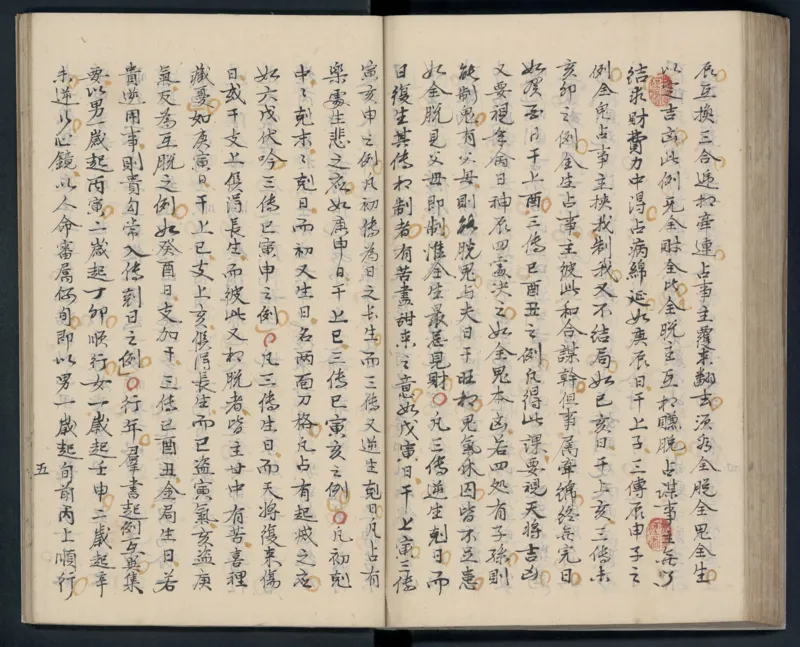 辰互換三合遞相牽連占事主翻來翻去須分全脫全鬼全生
以定吉凶此例死全財全比全脫主互相賺脫占謀事主無了
結求財費力中得占病綿延如庚辰日干上子三傳辰申子之
例全鬼占事主挾我制我又不結局如己亥日干上亥三傳未
亥卯之例全生占事主彼此和合謀幹但事屬牽綿終無完日
如癸酉日干上酉三傳巳酉丑之例凡得此課要視天將吉凶
又要視年命日神辰四處決之如全鬼本凶若四処有子孫則
能制鬼有父母則能脫鬼與夫日干旺相鬼氣休囚皆不足患
如全脫見父母即制准全生最忌見財〇凡三傳遞生剋日而
日復生其傳相制者有苦盡甜來之意如戊寅日干上寅三傳
寅亥申之例凡初傳為日之長生而三傳又遞生剋日凡占有
樂處生悲之應如庚申日干上巳三傳巳寅亥之例〇凡初剋
中〻剋末〻剋日而初又生日名両面刀格凡占有起滅之應
如六戊伏吟三傳巳寅申之例〇凡三傳生日而天將復來傷
日或干支上俱得長生而彼此又相脫者皆主中有苦喜裡
藏憂如庚寅日干上巳支上亥俱得長生而巳盜寅氣亥盜庚
氣反為互脫之例如癸酉日支加干三傳巳酉丑金局生日若
貴逆用事則貴勾常入傳剋日之例〇行年羣書起例互異集
要以男一歲起丙寅二歲起丁卯順行女一歲起壬申二歲起辛
未逆行心鏡以人命審屬何旬即以男一歲起旬前丙上順行
五